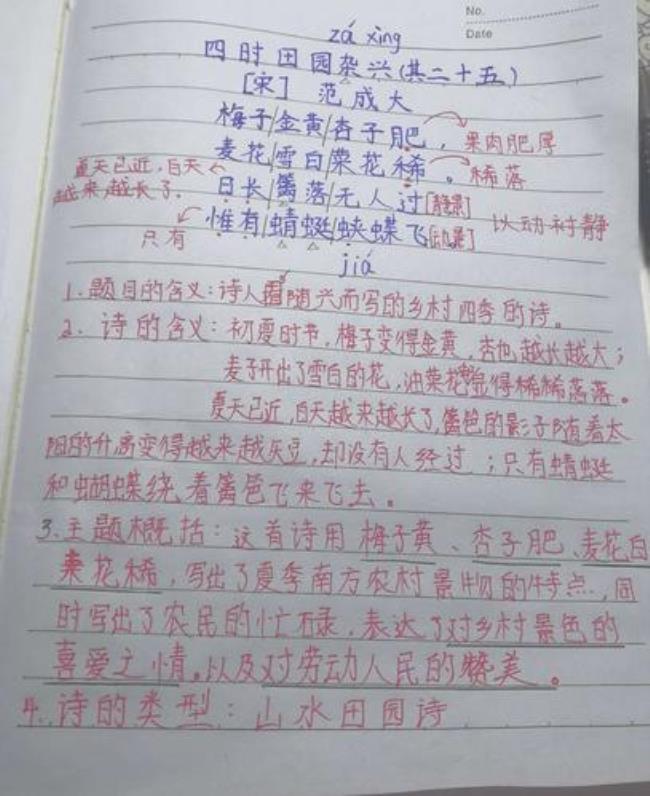 No.
Date
zá xìng
四时田园杂兴(其二十五)
[宋] 范成大
梅子/金黄/杏子肥, 果肉肥厚
麦花/雪白/菜花稀。 稀落
夏天已近,白天越来越长了.
日长/篱落/无人过[静景]
惟有/蜻蜓/蛱蝶飞[动景] 以动衬静
只有
jiá
1.题目的含义:诗人随兴而写的乡村四季的诗。
2.诗的含义:初夏时节,梅子变得金黄,杏也越长越大;
麦子开出了雪白的花,油菜花显得稀稀落落。
夏天已近,白天越来越长了,篱笆的影子随着太
阳的升高变得越来越短,却没有人经过;只有蜻蜓
和蝴蝶绕着篱笆飞来飞去。
3.主题概括:这首诗用梅子黄、杏子肥、麦花白
菜花稀,写出了夏季南方农村景物的特点,同
时写出了农民的忙碌,表达了对乡村景色的
喜爱之情。以及对劳动人民的赞美。
4.诗的类型:山水田园诗